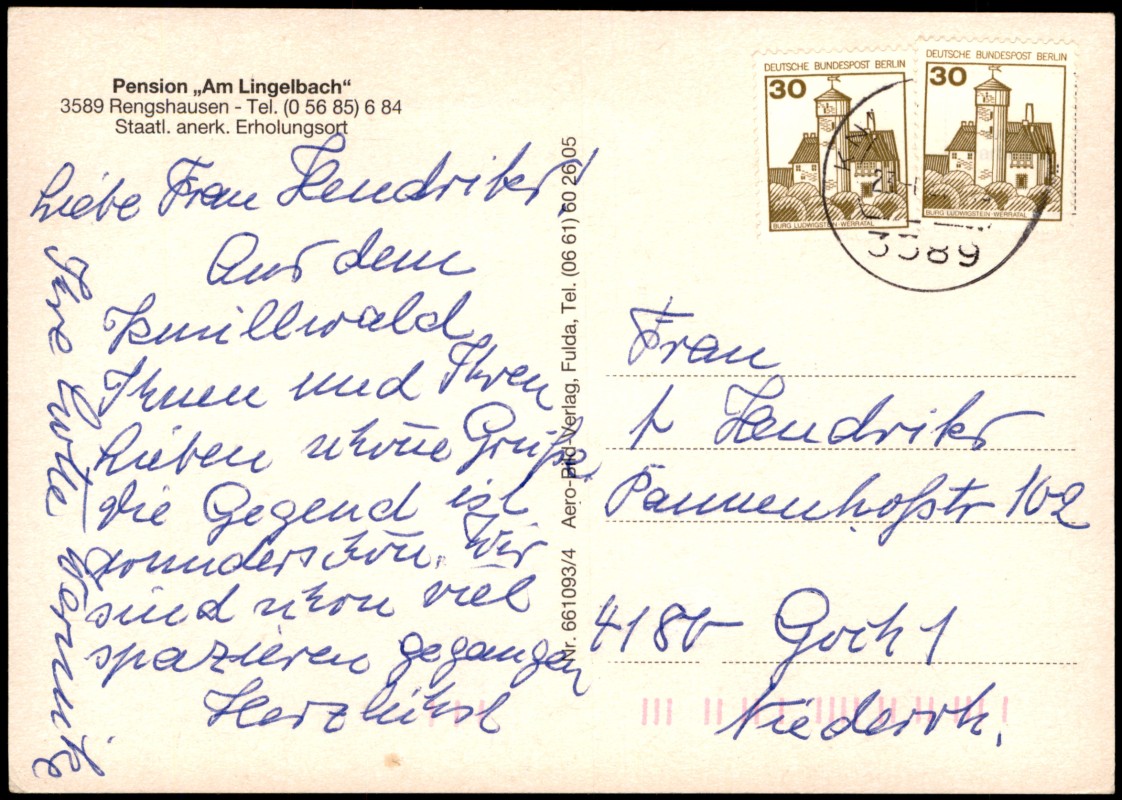 Pension „Am Lingelbach“
3589 Rengshausen - Tel. (0 56 85) 6 84
Staatl. anerk. Erholungsort
Liebe Frau Hendriks!
Aus dem
Knüllwald
Ihnen und Ihren
Lieben schöne Grüße.
Die Gegend ist
wunderschön. Wir
sind schon viel
spazieren gegangen
Herzlichst
Ihre Lotte Wernicke
Nr. 661093/4 Aero-Bild-Verlag, Fulda, Tel. (06 61) 60 26 05
DEUTSCHE BUNDESPOST BERLIN
30
BURG LUDWIGSTEIN · WERRATAL
DEUTSCHE BUNDESPOST BERLIN
30
BURG LUDWIGSTEIN · WERRATAL
3589
Frau
Hendriks
Pannenhofstr 102
4180 Goch 1
Niederrh.